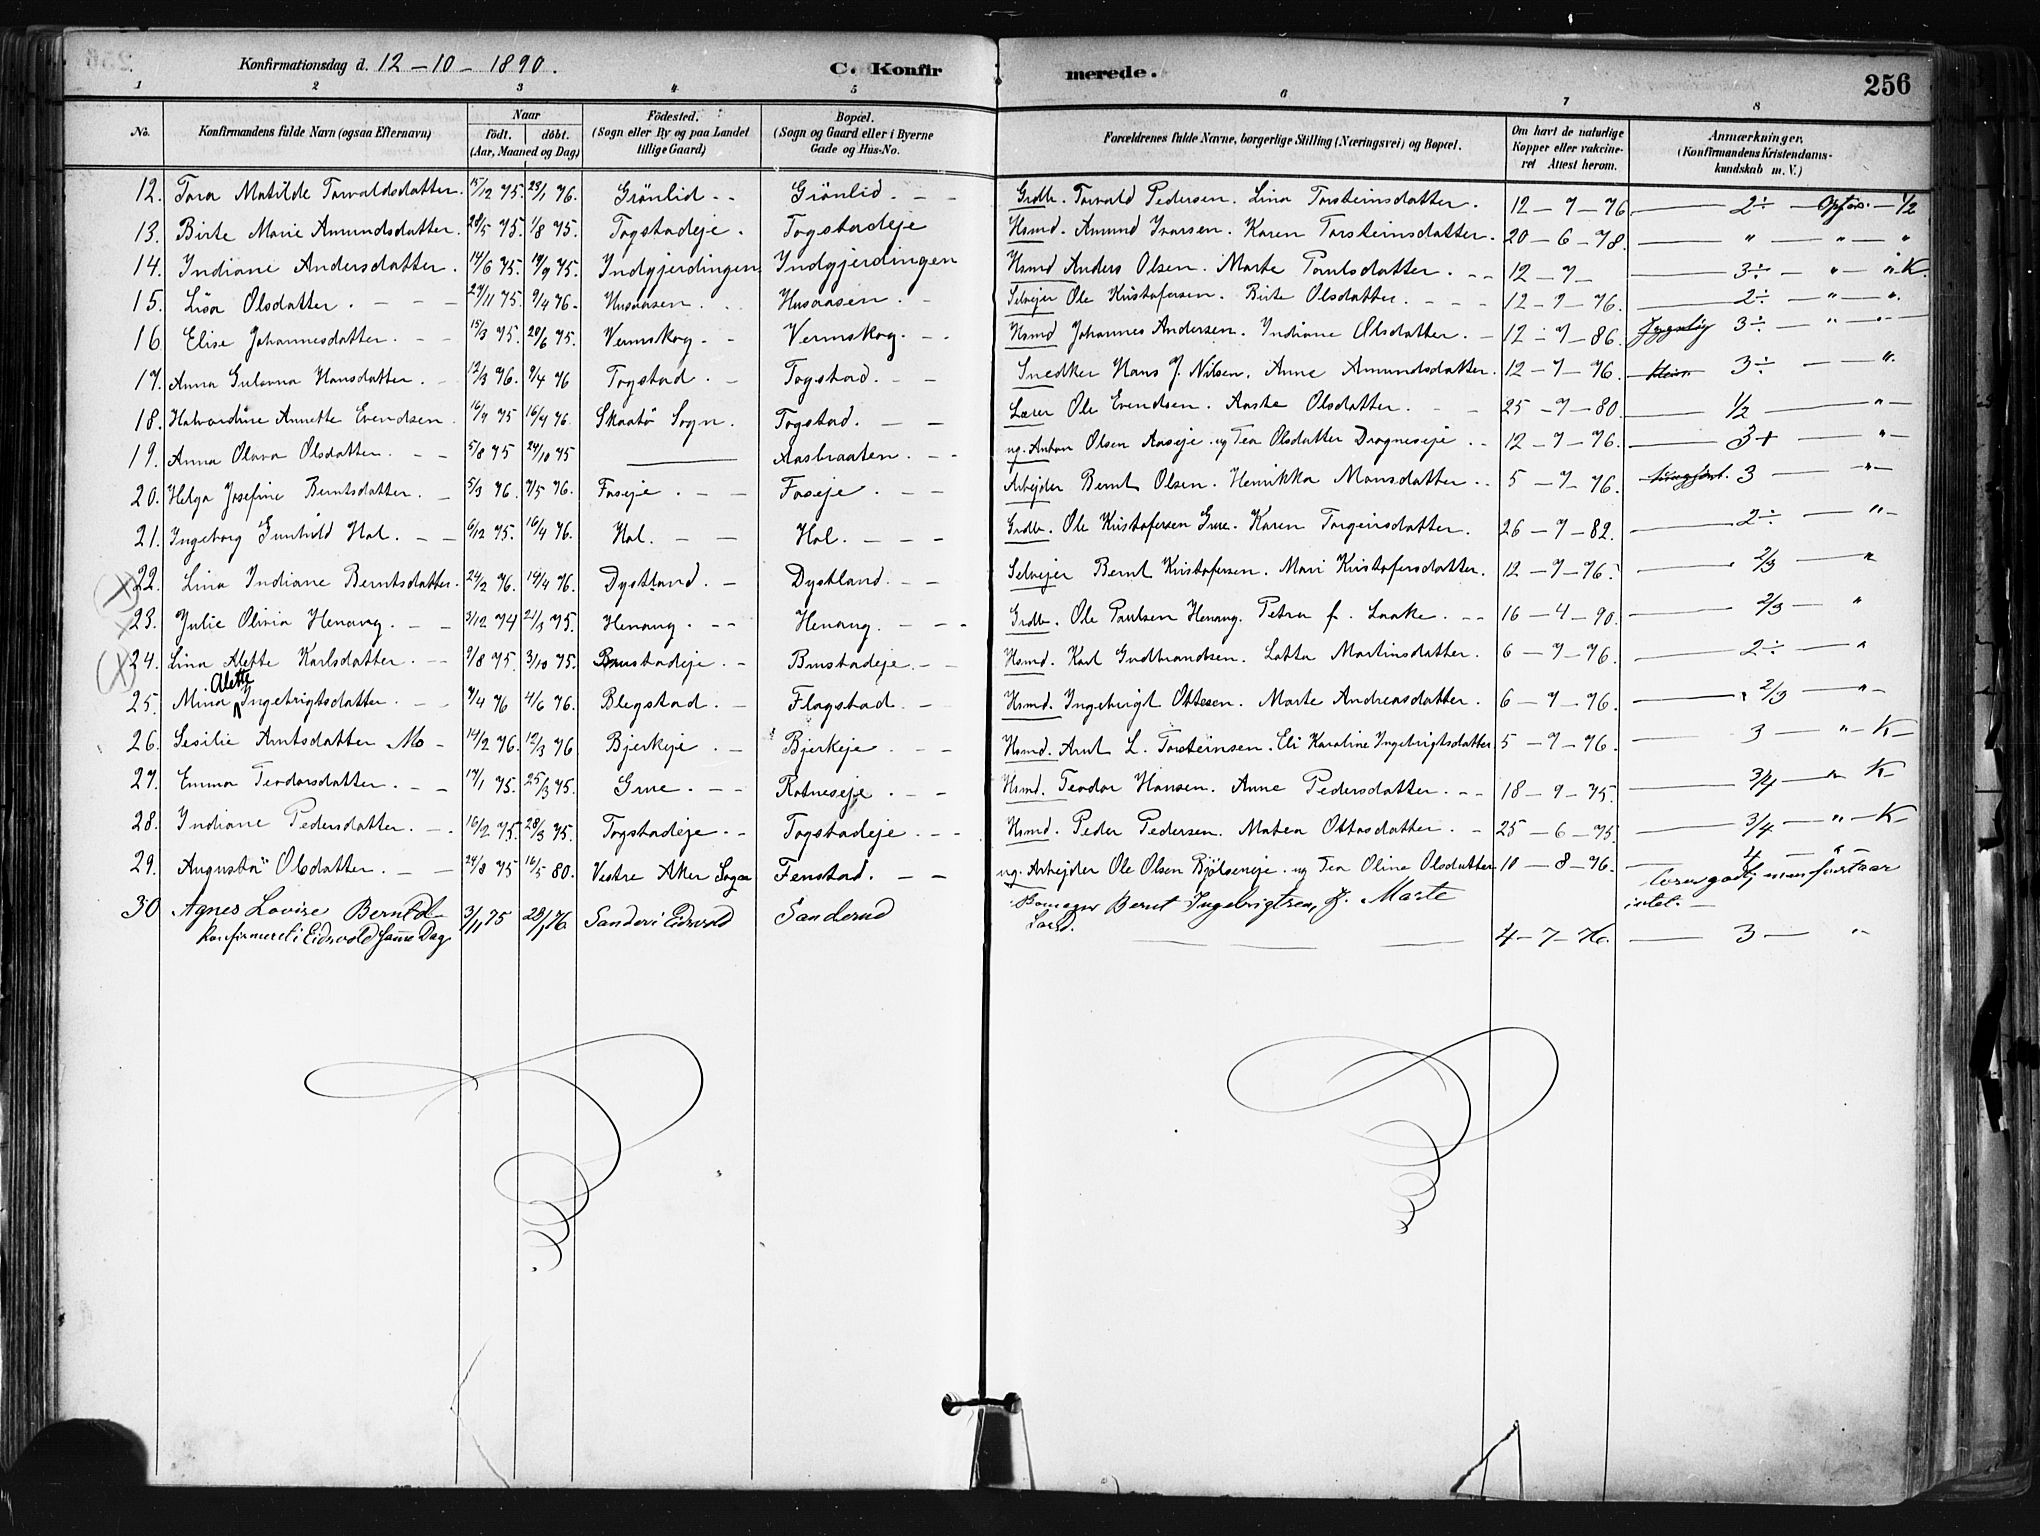 Konfirmationsdag d. 12 – 10 – 1890. C. Konfirmerede. 256
1 2 3 4 5 6 7 8
No. Konfirmandens fulde Navn (ogsaa Efternavn) Naar födt. döbt. (Aar, Maaned og Dag) Födested. (Sogn eller By og paa Landet tillige Gaard) Bopæl. (Sogn og Gaard eller i Byerne Gade og Hus-No. Forældrenes fulde Navne, borgerlige Stilling (Næringsvei) og Bopæl. Om havt de naturlige Kopper eller vakcineret Attest herom. Anmærkninger. (Konfirmandens Kristendomskundskab m. V.)
12. Tora Matilde Torvaldsdatter. 15/12 75. 23/1 76. Grönlid Grönlid. Grdb. Torvald Pedersen. Lina Torsteinsdatter. 12 – 7 – 76. 2÷ – – 1/2
13. Birte Marie Amundsdatter. 28/5 75. 1/8 75. Togstadeje. Togstadeje Hsmd. Amund Ivarsen. Karen Torsteinsdatter. 20 – 6 – 78. " – " – "
14. Indiane Andersdatter. 14/6 75. 19/9 75. Indgjerdingen Indgjerdingen Hsmd Anders Olsen. Marte Paulsdatter. 12 – 7 – 3÷ – " – " K.
15. Lisa Olsdatter. 27/11 75. 9/4 76. Husaasen Husaasen. Selvejer Ole Kristofersen. Birte Olsdatter. 12 – 7 – 76. 2÷ – " – "
16 Elise Johannesdatter. 15/3 75. 20/6 75. Vermskog. Vermskog. Hsmd Johannes Andersen. Indiane Olsdatter. 12 – 7 – 86. 3÷ – " – "
17. Anna Gulovna Hansdatter. 12/3 76. 9/4 76 Togstad. Togstad. Snedker Hans J. Nilsen. Anne Amundsdatter. 12 – 7 – 76. 3÷ – "
18. Halvardine Annette Evendsen. 16/9 75 16/4 76. Skaatö Sogn. Togstad. Lærer Ole Evendsen. Aaste Olsdatter. 25 – 9 – 80. 1/2 – "
19. Anna Olava Olsdatter. 5/8 75 24/10 75 — Aasbraaten. ug. Anton Olsen Aaseje. ug Tea Olsdatter Dragneseje 12 – 7 – 76. 3+ – "
20. Helga Josefine Berntsdatter. 5/3 76. 7/5 76. Foseje. Foseje. Arbejder Bernt Olsen. Henrikka Monsdatter. 5 – 7 – 76. 3 – "
21. Ingeborg Gunhild Hol. 6/12 75. 16/4 76. Hol. Hol. Grdb. Ole Kristofersen Grue. Karen Torgeirsdatter. 26 – 7 – 82. 2÷ – "
22. Lina Indiane Berntsdatter. 24/2 76. 14/4 76. Dystland. Dystland. Selvejer Bernt Kristofersen. Mari Kristofersdatter. 12 – 7 – 76. 2/3 – "
23. Julie Olivia Henaug. 3/12 74 21/3 75. Henaug. Henaug. Grdb. Ole Paulsen Henaug. Petra f. Laake. 16 – 4 – 90. 2/3 – "
24. Lina Alette Karlsdatter. 9/8 75. 3/10 75. Brustadeje. Brustadeje. Hsmd. Karl Gudbrandsen. Lotta Martinsdatter. 6 – 7 – 76. 2÷ – "
25. Mina Alette Ingebrigtsdatter. 7/4 76 4/6 76. Blegstad. Flagstad. Hsmd. Ingebrigt Ottesen. Marte Andreasdatter. 6 – 7 – 76. 2/3 – "
26. Sesilie Arntsdatter Mo 14/2 76. 12/3 76 Bjerkeje. Bjerkeje. Hsmd. Arnt L. Torsteinsen. Eli Karoline Ingebrigtsdatter 5 – 7 – 76. 3 – " – K
27. Emma Teodorsdatter. 17/1 75. 25/3 75. Grue. Rotneseje. Hsmd. Teodor Hansen. Anne Pedersdatter. 18 – 9 – 75. 3/4 – " K
28. Indiane Pedersdatter. 16/2 75. 28/3 75. Togstadeje. Togstadeje. Hsmd. Peder Pedersen. Matea Ottosdatter. 25 – 6 – 75. 3/4 – " – K
29. Augusta Olsdatter. 24/8 75 16/5 80. Vestre Aker Sogn Fenstad. ug. Arbejder Ole Olsen Bjölseneje. ug Tea Olina Olsdatter 10 – 8 – 76. 4 – "
læser godt, men forstaar intet.
30 Agnes Lovise Berntd. 3/11 75 23/1 76 Sander i Eidsvold Sanderud Bernt Ingebrigtsen, f. Marte
konfirmeret i Eidsvold samme Dag 4 – 7 – 76. 3 – "